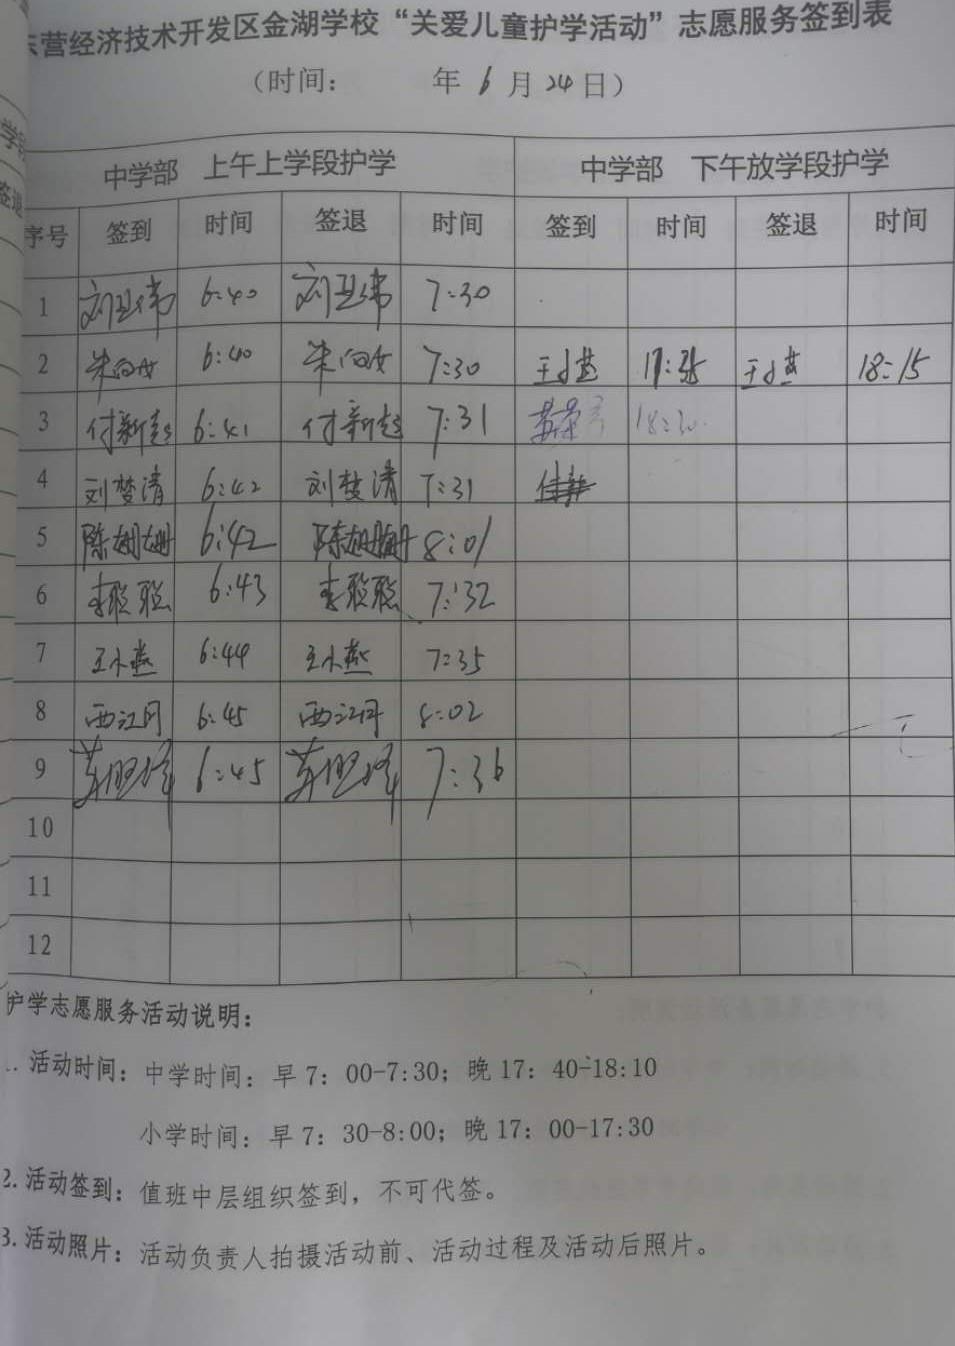 东营经济技术开发区金湖学校“关爱儿童护学活动”志愿服务签到表
（时间： 年 6 月 24 日）
中学部 上午上学段护学 中学部 下午放学段护学
序号 签到 时间 签退 时间 签到 时间 签退 时间
1 6:40 7:30
2 6:40 7:30 王小燕 17:35 王小燕 18:15
3 付新超 6:41 付新超 7:31
4 刘梦清 6:42 刘梦清 7:31
5 陈姗姗 6:42 陈姗姗 8:01
6 李聪聪 6:43 李聪聪 7:32
7 王小燕 6:44 王小燕 7:35
8 西江月 6:45 西江月 8:02
9 6:45 7:36
10
11
12
护学志愿服务活动说明：
1. 活动时间：中学时间：早7：00-7:30；晚17：40-18:10
小学时间：早7：30-8:00；晚17：00-17:30
2. 活动签到：值班中层组织签到，不可代签。
3. 活动照片：活动负责人拍摄活动前、活动过程及活动后照片。
学段
签退